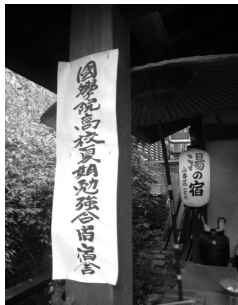 國學院高校夏期勉強合宿宿舎
湯の宿